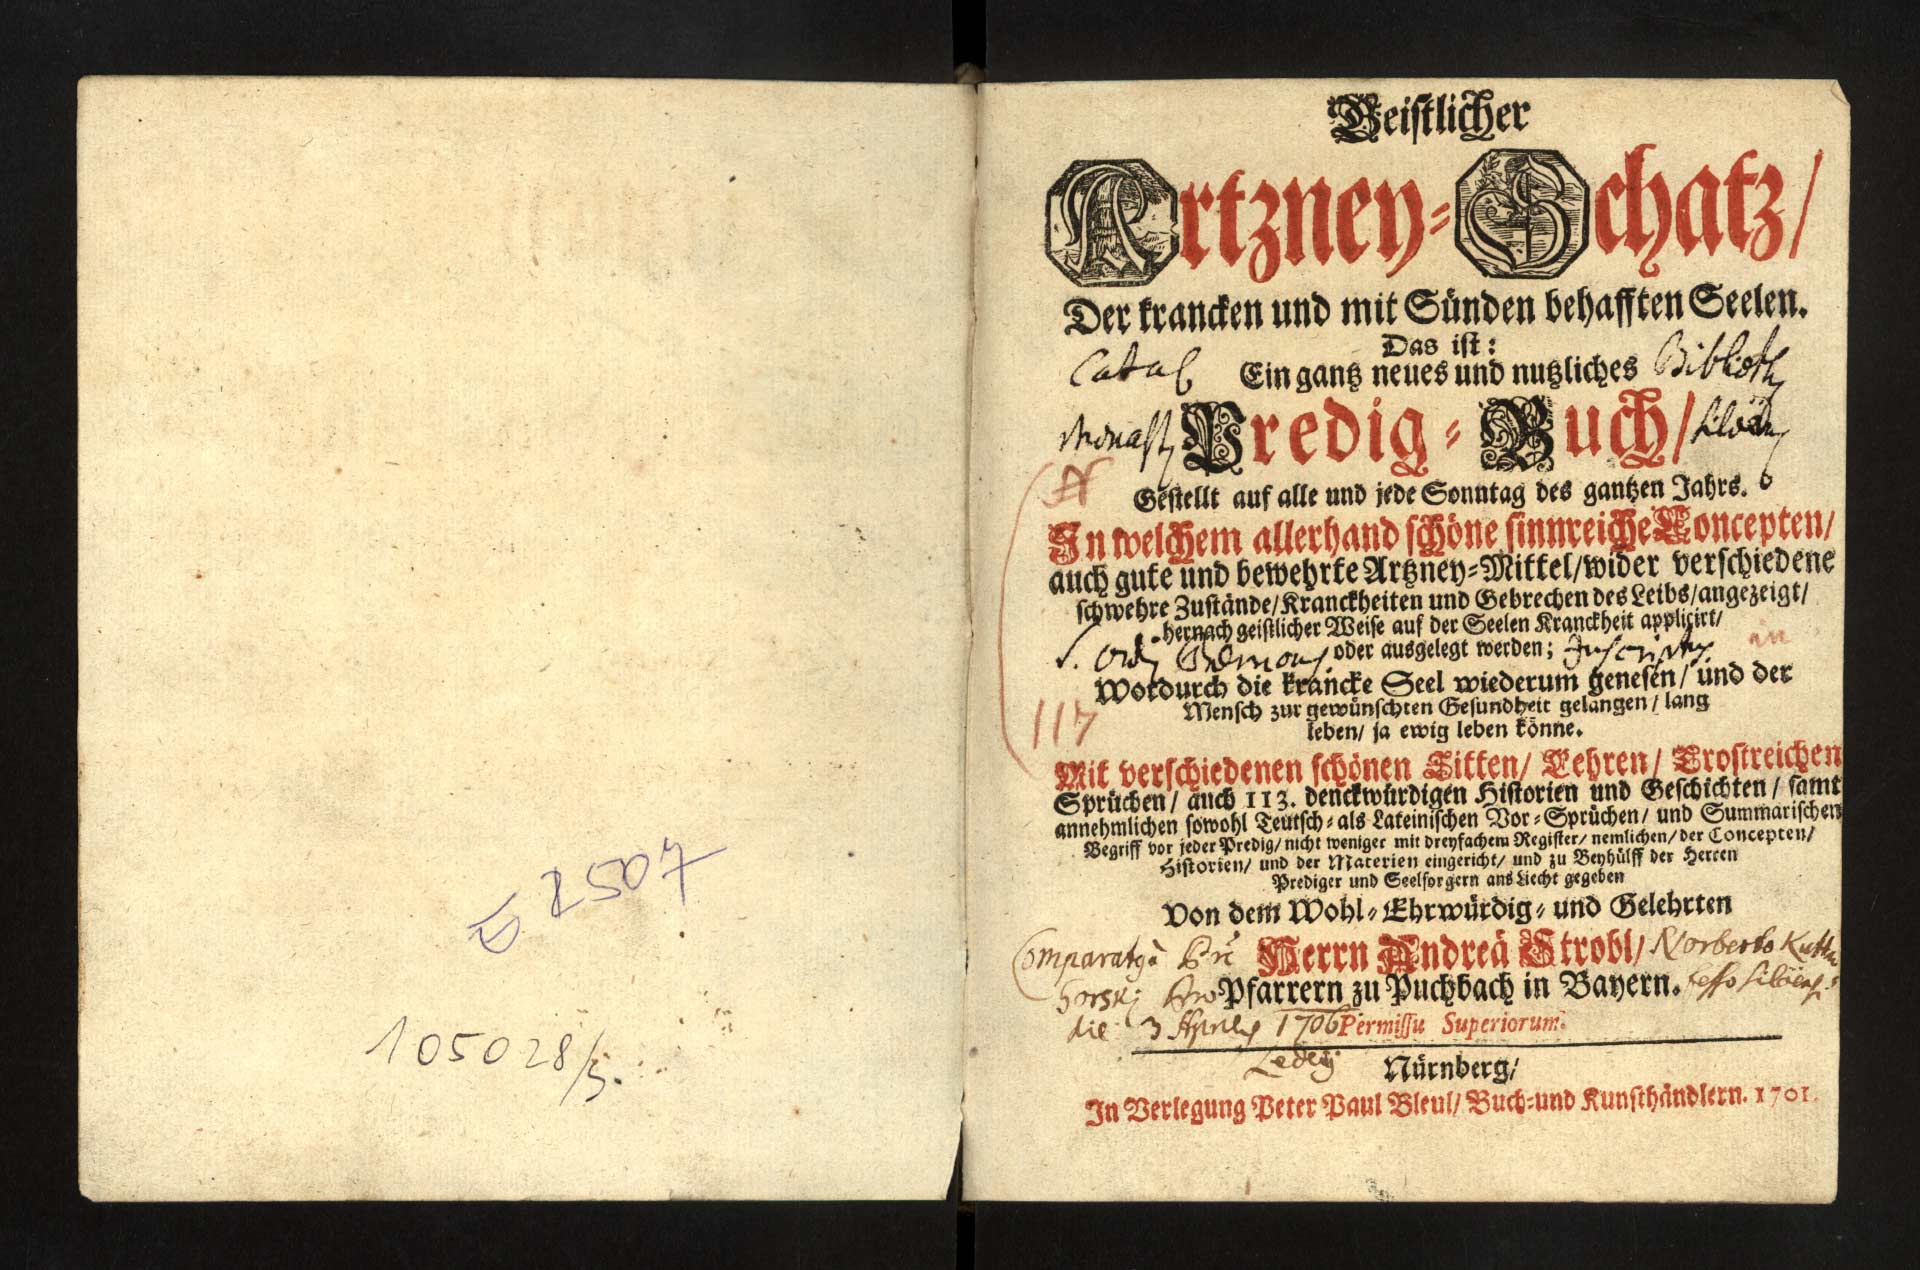 105028/5.
Geistlicher
Artzney-Schatz/
Der krancken und mit Sünden behafften Seelen.
Das ist:
Catal Ein gantz neues und nutzliches Biblioth
Monast Predig-Buch/ Siloën
Gestellt auf alle und jede Sonntag des gantzen Jahrs.
In welchem allerhand schöne sinnreiche Concepten/
auch gute und bewehrte Artzney-Mittel/ wider verschiedene
schwehre Zustände/ Kranckheiten und Gebrechen des Leibs/ angezeigt/
hernach geistlicher Weise auf der Seelen Kranckheit applicirt/
S. Ord. oder ausgelegt werden; Inscript
Wordurch die krancke Seel wiederum genesen/ und der
117
Mensch zur gewünschten Gesundheit gelangen/ lang
leben/ ja ewig leben könne.
Mit verschiedenen schönen Sitten/ Lehren/ Trostreichen
Sprüchen/ auch 113. denckwürdigen Historien und Geschichten/ samt
annehmlichen sowohl Teutsch-als Lateinischen Vor-Sprüchen/ und Summarischen
Begriff vor jeder Predig/ nicht weniger mit dreyfachem Register/ nemlichen/ der Concepten/
Historien/ und der Materien eingericht/ und zu Beyhülff der Herren
Prediger und Seelsorgern ans Liecht gegeben
Von dem Wohl-Ehrwürdig-und Gelehrten
Comparatq à Herrn Andreä Strobl/ Norberto
Pfarrern zu Puchbach in Bayern.
die 3 Aprilis 1706 Permissu Superiorum.
Nürnberg/
In Verlegung Peter Paul Bleul/ Buch-und Kunsthändlern. 1701.